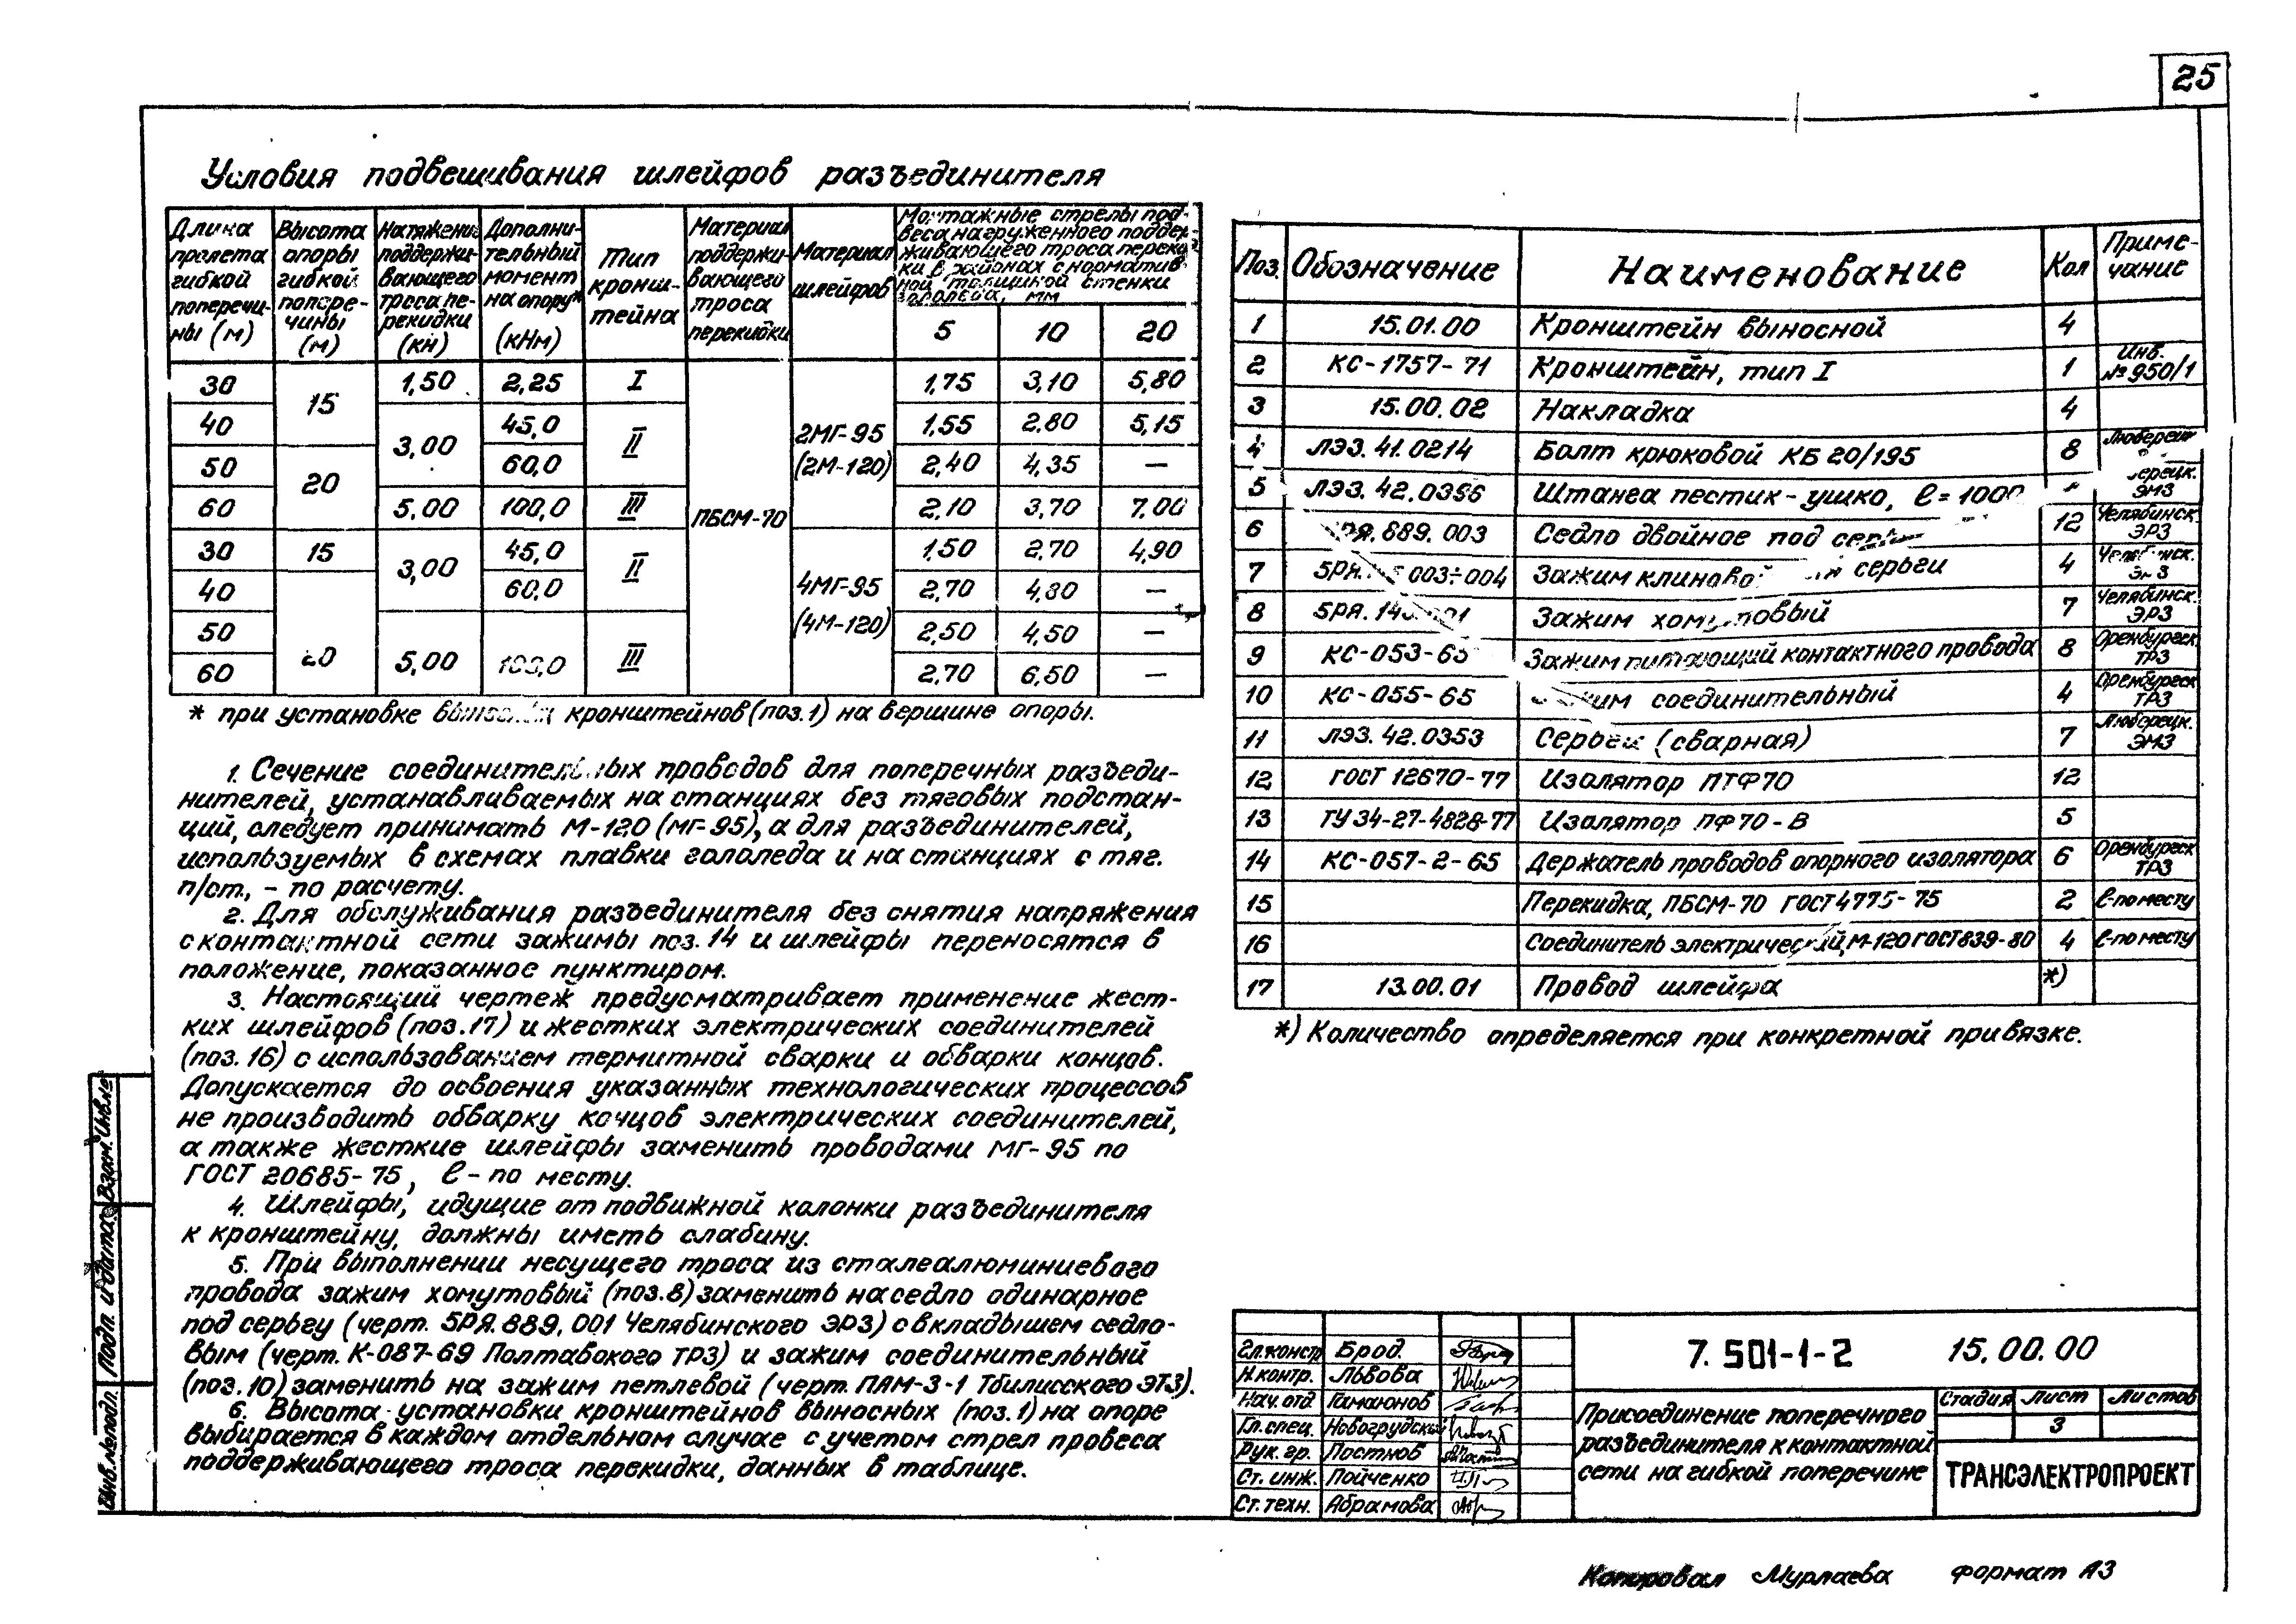 25
Условия подвешивания шлейфов разъединителя
Длина пролета гибкой поперечины (м)
Высота опоры гибкой поперечины (м)
Натяжение поддерживающего троса перекидки (кН)
Дополнительный момент на опору* (кНм)
Тип кронштейна
Материал поддерживающего троса перекидки
Материал шлейфов
Монтажные стрелы подвеса нагруженного поддерживающего троса перекидки в районах с нормативной толщиной стенки гололеда, мм
5 10 20
30 15 1,50 2,25 I ПБСМ-70 2МГ-95 (2М-120) 1,75 3,10 5,80
40 3,00 45,0 II 1,55 2,80 5,15
50 20 60,0 2,40 4,35 —
60 5,00 100,0 III 2,10 3,70 7,00
30 15 3,00 45,0 II 4МГ-95 (4М-120) 1,50 2,70 4,90
40 60,0 2,70 4,80 —
50 20 5,00 100,0 III 2,50 4,50 —
60 2,70 6,50 —
* при установке кронштейнов (поз.1) на вершине опоры.
1. Сечение соединительных проводов для поперечных разъеди-
нителей, устанавливаемых на станциях без тяговых подстан-
ций, следует принимать М-120 (МГ-95), а для разъединителей,
используемых в схемах плавки гололеда и на станциях с тяг.
п/ст., - по расчету.
2. Для обслуживания разъединителя без снятия напряжения
с контактной сети зажимы поз. 14 и шлейфы переносятся в
положение, показанное пунктиром.
3. Настоящий чертеж предусматривает применение жест-
ких шлейфов (поз.17) и жестких электрических соединителей
(поз. 16) с использованием термитной сварки и обварки концов.
Допускается до освоения указанных технологических процессов
не производить обварку концов электрических соединителей,
а также жесткие шлейфы заменить проводами МГ-95 по
ГОСТ 20685-75, ℓ - по месту.
4. Шлейфы, идущие от подвижной колонки разъединителя
к кронштейну, должны иметь слабину.
5. При выполнении несущего троса из сталеалюминиевого
провода зажим хомутовый (поз.8) заменить на седло одинарное
под серьгу (черт. 5РЯ.889.001 Челябинского ЭРЗ) с вкладышем седло-
вым (черт. К-087-69 Полтавского ТРЗ) и зажим соединительный
(поз.10) заменить на зажим петлевой (черт. ПАМ-3-1 Тбилисского ЭТЗ).
6. Высота установки кронштейнов выносных (поз.1) на опоре
выбирается в каждом отдельном случае с учетом стрел провеса
поддерживающего троса перекидки, данных в таблице.
Поз. Обозначение Наименование Кол Приме-чание
1 15.01.00 Кронштейн выносной 4
2 КС-1757-71 Кронштейн, тип I 1 Инв. №950/1
3 15.00.02 Накладка 4
4 ЛЭЗ.41.0214 Болт крюковой КБ 20/195 8
5 ЛЭЗ.42.0356 Штанга пестик-ушко, ℓ=1000 ЭМЗ
6 889.003 Седло двойное под 12 Челябинск. ЭРЗ
7 003÷004 Зажим серьги 4 Челябинск. ЭРЗ
8 Зажим хомутовый 7 Челябинск. ЭРЗ
9 КС-053-65 Зажим питающий контактного провода 8 Оренбургск ТРЗ
10 КС-055-65 Зажим соединительный 4 Оренбургск ТРЗ
11 ЛЭЗ.42.0353 Серьга (сварная) 7 Люберецк. ЭМЗ
12 ГОСТ 12670-77 Изолятор ПТФ70 12
13 ТУ34-27-4828-77 Изолятор ПФ70-В 5
14 КС-057-2-65 Держатель проводов опорного изолятора 6 Оренбургск ТРЗ
15 Перекидка, ПБСМ-70 ГОСТ4775-75 2 ℓ-по месту
16 Соединитель электрический, М-120 ГОСТ839-80 4 ℓ-по месту
17 13.00.01 Провод шлейфа *)
*) Количество определяется при конкретной привязке.
Взам. Инв.№
Подп. и дата
Инв.№подл.
Гл.констр Брод.
Н.контр. Львова
Нач. отд. Гамаюнов
Гл.спец. Новогрудский
Рук. гр. Постнов
Ст. инж. Лойченко
Ст. техн. Абрамова
7.501-1-2 15.00.00
Присоединение поперечного
разъединителя к контактной
сети на гибкой поперечине
Стадия Лист Листов
3
ТРАНСЭЛЕКТРОПРОЕКТ
Копировал Мурлаева формат А3